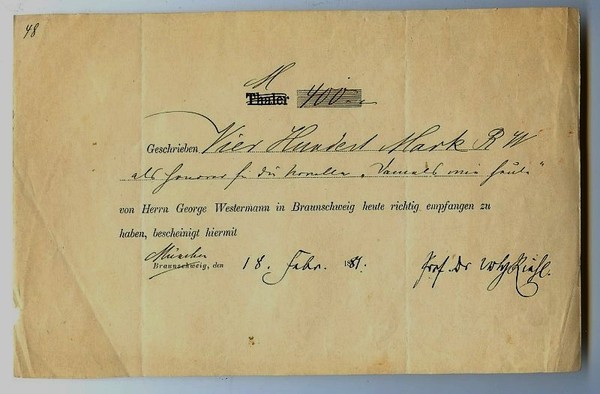 48
M
Thaler 400.–
Geschrieben Vier Hundert Mark R W
als Honorar f. die Novelle „Damals wie heute“
von Herrn George Westermann in Braunschweig heute richtig empfangen zu
haben, bescheinigt hiermit
München
Braunschweig, den 18. Febr. 1881. Prof. Dr WHRiehl.